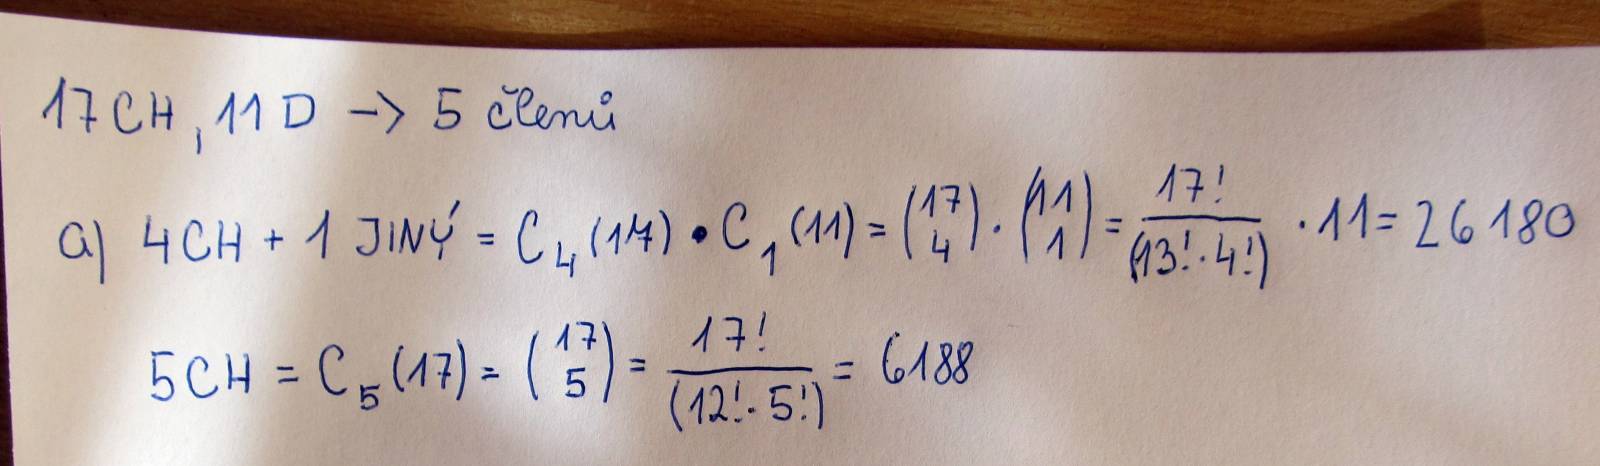 17CH, 11D -> 5 členů
a) 4CH + 1 JINÝ = C₄(17) • C₁(11) = (17 4) · (11 1) = 17! / (13! · 4!) · 11 = 26180
5CH = C₅(17) = (17 5) = 17! / (12! · 5!) = 6188